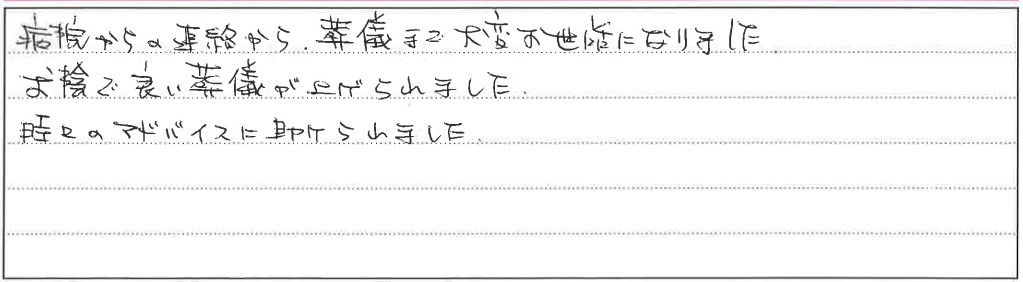 病院からの連絡から、葬儀まで大変お世話になりました
お陰で良い葬儀が上げられました。
時々のアドバイスに助けられました。